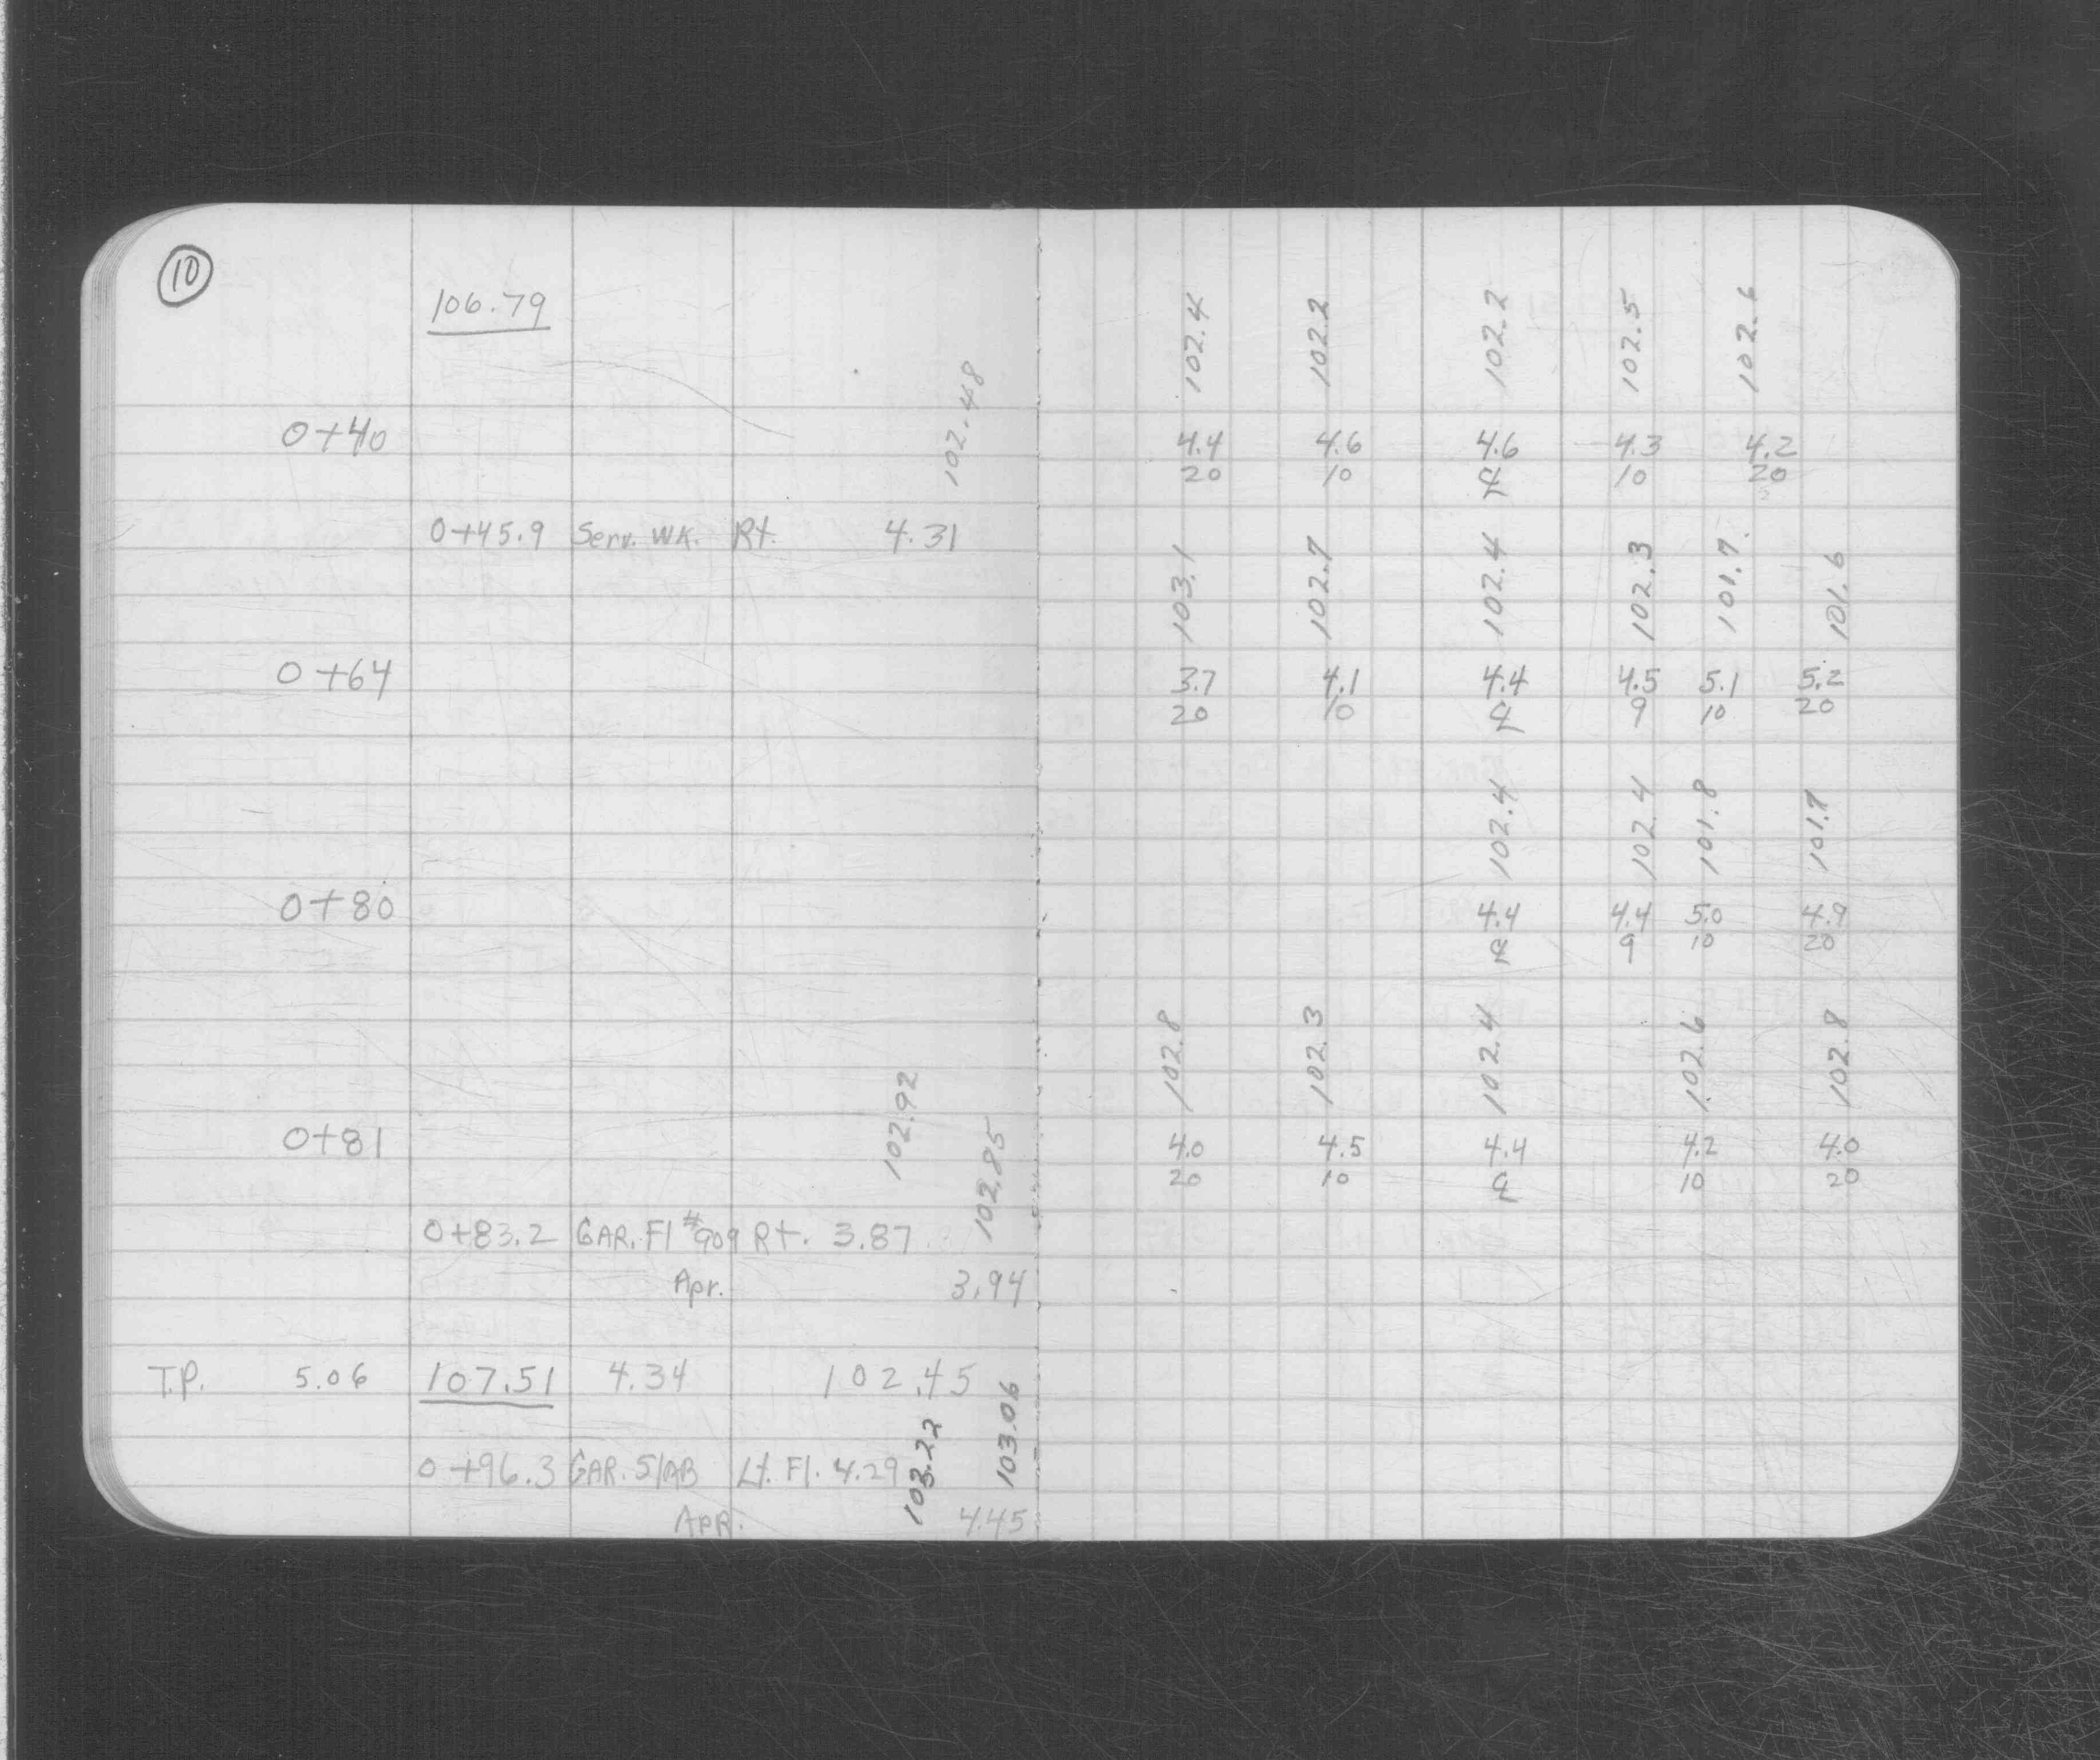 10
106.79
102.48
0+40
0+45.9 Serv. WK. Rt. 4.31
0+64
0+80
102.92
102.85
0+81
0+83.2 GAR. Fl #909 Rt. 3.87
Apr. 3.94
T.P. 5.06 107.51 4.34 102.45
103.22
103.06
0+96.3 GAR. SlAB Lt. Fl. 4.29
APR. 4.45
102.4 102.2 102.2 102.5 102.6
4.4 4.6 4.6 4.3 4.2
20 10 ℄ 10 20
103.1 102.7 102.4 102.3 101.7 101.6
3.7 4.1 4.4 4.5 5.1 5.2
20 10 ℄ 9 10 20
102.4 102.4 101.8 101.7
4.4 4.4 5.0 4.9
℄ 9 10 20
102.8 102.3 102.4 102.6 102.8
4.0 4.5 4.4 4.2 4.0
20 10 ℄ 10 20